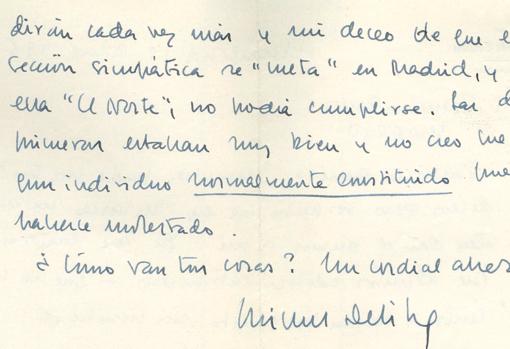 dirán cada vez más y mi deseo de que e
sección simpática se "meta" en Madrid, y
ella "El Norte", no podía cumplirse. Las d
primeras estaban muy bien y no creo que
a un individuo normalmente constituido pue
haberle molestado.
¿Cómo van tus cosas? Un cordial abraz
Miguel Delibes